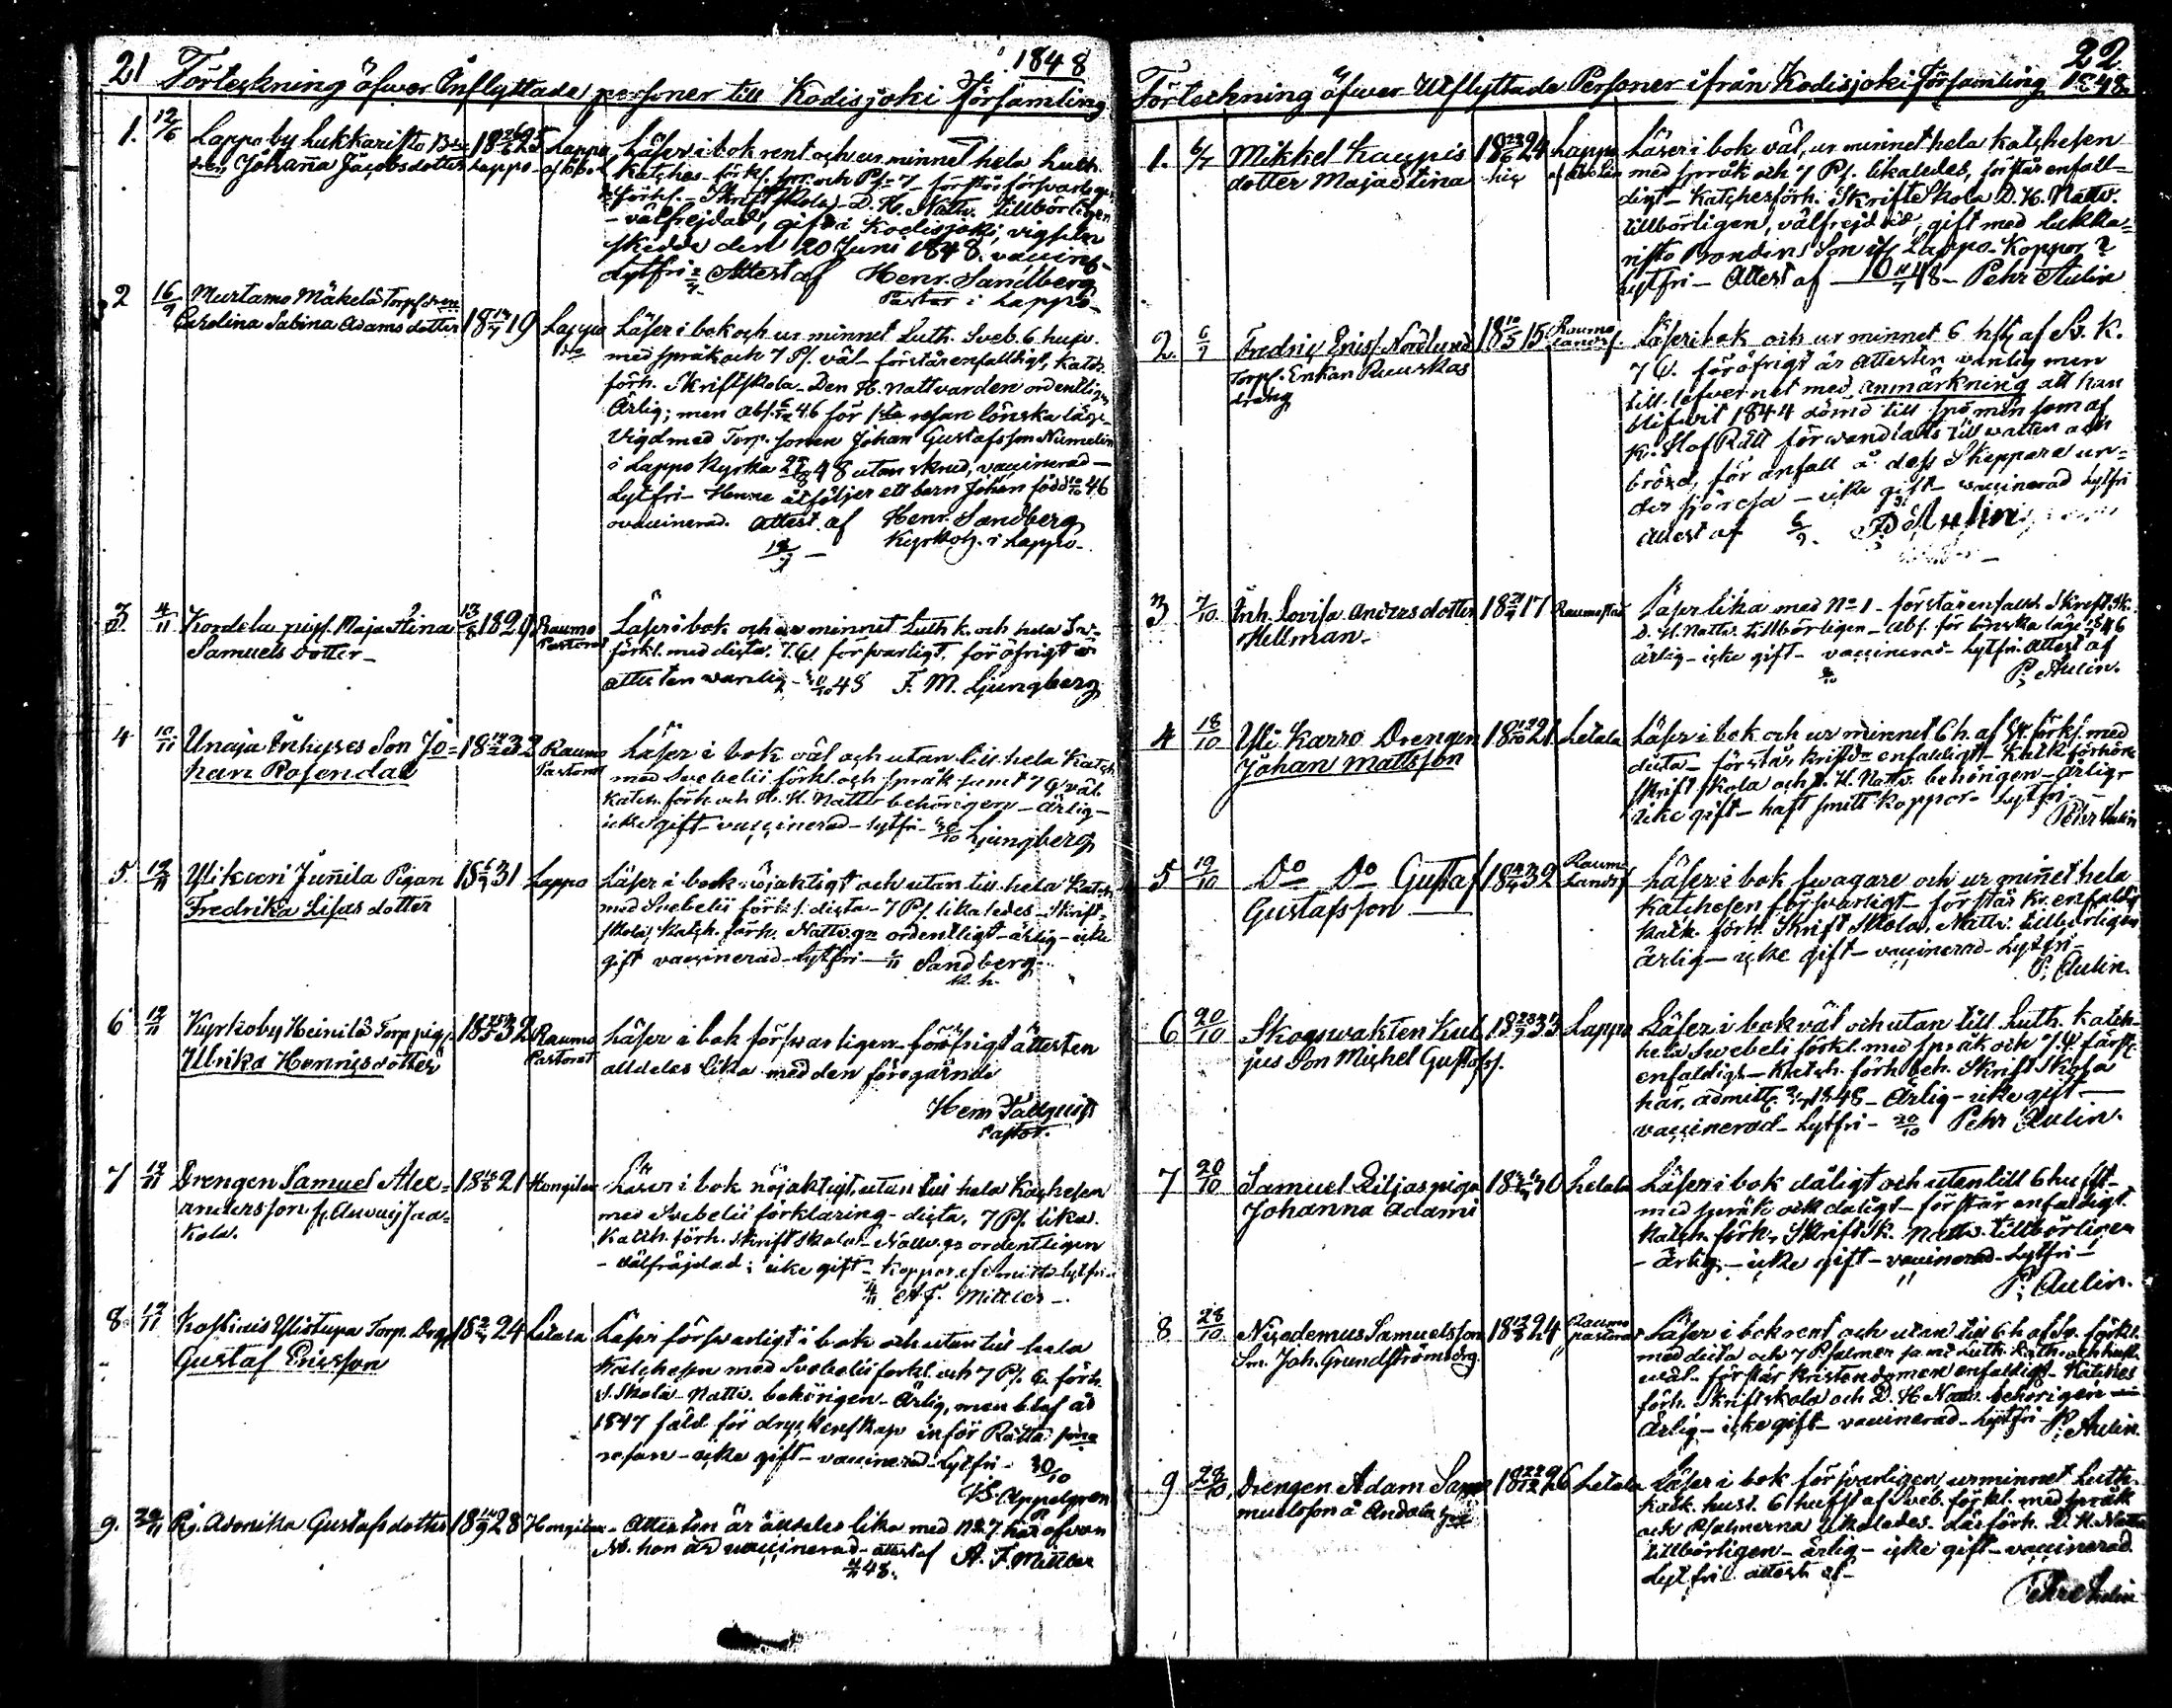 21 Förteckning öfwer Inflyttade personer till Kodisjoki Församling 1848
1. 12/6 Lappo by Lukkaristo
Johanna Jacobsdotter 18 26/5 25 Lappo
Läser i bok rent och ur minnet hela Luth.
Katches. förkl. spr. och Ps. 7 förstår försvarligen
förhs. Skriftskola D. H. Nattv. tillbörligen
välfrejdad, gift i Kodisjoki, vigseln
skedde den 20 Juni 1848. vaccine
Lytfri Attest af Henr. Sandberg
Pastor i Lappo
2 16/9 Murtamo Mäkelä Torpsven
Carolina Sabina Adamsdotter 18 19 Lappo
Läser i bok och ur minnet Luth. Sveb. 6 hufv.
med språk och 7 Ps. väl förstår enfalldigt, Katch.
förh. Skriftskola Den H. nattvarden ordentligen
Ärlig; men abs. 46 för 1sta resan lönskaläge
Vigd med Torp. sonen Johan Gustafsson Numelin
i Lappo Kyrka 48 utan skrud, vaccinerad
Lytfri Henne åtföljer ett barn Johan född 46
ovaccinerad. Attest af Henr. Sandberg
Kyrkoh. i Lappo
3. 4/11 Kordela pigs. Maja Stina 13/8 1829 Raumo
Samuels dotter Pastorat
Läser i bok och ur minnet Luth. k. och hela Sv.
förkl. med dicta. 7. Ps. försvarligt. för öfrigt är
attesten vanlig 48 F. M. Ljungberg
4 10/11 Unaja Inhyses Son Jo= 18 32 Raumo
han Rosendal Pastorat
Läser i bok väl och utan till hela Katch
med Svebelii förkl. och språk samt 7 Ps. väl.
Katch. förh. och D. H. Nattv. behörigen ärlig
icke gift vaccinerad lytfri 30/10 Ljungberg
5. 12/11 Ylikeeri Junnila Pigan 18 31 Lappo
Fredrika Lisas dotter
Läser i bok nöjaktigt och utan till hela Katch.
med Svebelii förkl. dicta 7 Ps. likaledes Skrift=
skola, Katch. förh. Nattv. ordentligt ärlig icke
gift vaccinerad Lytfri Sandberg
K. h.
6 12/11 Kyrkoby Heinilä Torp pigs. 18 32 Raumo
Ulrika Henricsdotter Pastorat
Läser i bok försvarligen föröfrigt ättesten
alldeles lika med den föregående
Henr. Fallquist
Pastor.
7 12/11 Drengen Samuel Alex= 18 21 Hongilax
andersson fr.
kola.
Läser i bok nöjaktigt, utan till hela Katchesen
med Svebelii förklaring dicta, 7 Ps. lika.
Katch. förh. Skriftskola Nattv. ordentligen
välfräjdad; icke gift Koppor lytfri
A. F. Mittler
8 12/11 Koskuis Ylistupa Torp. Drgn 18 24 Letala
Gustaf Ericsson
Läser försvarligt i bok och utan till hela
Katchesen med Svebelii forkl. och 7 Ps. förh.
S. Skola Nattv. behörigen Ärlig, men blef år
1847 fäld för dryckenskap inför Rätta
resan icke gift vaccinerad Lytfri 30/10
Appelgren
9. 30/11 Pig. Adonika Gustafsdotter 18 28 Hongilax
Attesten är alldeles lika med No 7. här ofvan
Nb. hon är vaccinerad attest af A. F. Mittler
48.
22
Förteckning öfwer Utflyttade Personer ifrån Kodisjoki Församling 1848
1. 6/7 Mikkel Kaupis 18 24 Lappo
dotter Maja Stina
Läser i bok väl, ur minnet hela Katchesen
med språk och 7 Ps. likaledes, förstår enfall=
digt Katchesförh. Skrifte Skola D. H. Nattv.
tillbörligen, välfrejdad, gift med Lukka=
risto Bondens Son i Lappo Koppor
Lytfri Attest af 48 Pehr Aulin
2. 6/9 Fredric Ericss. Nordlund 18 10/5 15 Raumo
Torps. Enkan Ruuskas landsf.
dreng
Läser i bok och ur minnet 6 hfst af Sv. K.
7 Ps. föröfrigt är attesten vanlig men
till lefvernet med anmärkning att han
blifvit 1844 dömd till spö men som af
K. Hof Rätt förwandlats till vatten och
bröd, för anfall å dess Skeppare un=
der sjöresa icke gift vaccinerad Lytfri
Attest af 6/9. P. Aulin
3 7/10 Inh. Lovisa Andersdotter 18 17 Raumo stad
Hellman
Läser lika med No 1 förstår enfald. Skrift. Sk.
D. H. Nattv. tillbörligen abs. för lönskaläge 46
ärlig icke gift vaccinerad Lytfri. Attest af
P. Aulin.
4 18/10 Yli Karro Drengen 18 21 Letala
Johan Mattsson
Läser i bok och ur minnet 6 h. af Sv. förkl. med
dicta förstår enfaldigt Katk förhör
Skrift skola och D. H. Nattv. behörigen Ärlig
icke gift haft smitt koppor Lytfri
Pehr Aulin
5 19/10 Do Do Gustaf 18 32 Raumo
Gustafsson Landsf.
Läser i bok svagare och ur minnet hela
Katchesen försvarligt förstår kr. enfaldigt
Katk. förh. Skrift Skola, Nattv. tillbörligen
ärlig icke gift vaccinerad Lytfri
P. Aulin.
6 20/10 Skogswakten Kul 18 33 Lappo
jus Son Michel Gustafss.
Läser i bok väl och utan till Luth. Katch.
hela Svebeli förkl. med språk och 7 Ps. först.
enfaldigt Katch. förh. beh. Skrift Skola
här, admitt. 1848 Ärlig icke gift
vaccinerad Lytfri 20/10 Pehr Aulin.
7 20/10 Samuel Liljas piga 18 30 Letala
Johanna Adams
Läser i bok dåligt och utantill 6 hufst
med språk och dåligt förstår enfaldigt
Katch. förh. Skriftsk. Nattv. tillbörligen
ärlig icke gift vaccinerad Lytfri
P. Aulin.
8 28/10 Nicodemus Samuelsson 18 24 Raumo
Sm. Joh. Grundströms drg. pastorat
Läser i bok rent och utan till 6 h af Sv. förkl.
med dicta och 7 Psalmer samt Luth. Kath.
wäl förstår kristendomen enfaldigt Katches
förh. Skriftskola och D. H. Nattv. behörigen
Ärlig icke gift vaccinerad Lytfri P. Aulin.
9 28/10 Drengen Adam Sa 18 22/12 26 Letala
muelsson å Andola
Läser i bok försvarligen ur minnet Luth.
Katk. hust. 6 hufst af Sveb. förkl. med språk
och Psalmerna likaledes. Läsförh. D. H. Nattv.
tillbörligen ärlig icke gift vaccinerad
Lytfri attest af
Pehr Aulin